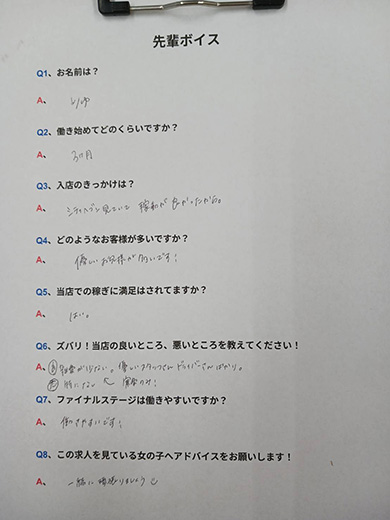 先輩ボイス
Q1、お名前は？
A、 しゅ
Q2、働き始めてどのくらいですか？
A、 3ヶ月
Q3、入店のきっかけは？
A、 シティヘブン見ていて 稼動が良かったから。
Q4、どのようなお客様が多いですか？
A、 優しいお客様が多いです！
Q5、当店での稼ぎに満足はされてますか？
A、 はい。
Q6、ズバリ！当店の良いところ、悪いところを教えてください！
A、 が少ない。優しいスタッフさん ドライバーさんばかり。
特にない
Q7、ファイナルステージは働きやすいですか？
A、 働きやすいです！
Q8、この求人を見ている女の子へアドバイスをお願いします！
A、 一緒に頑張りましょう